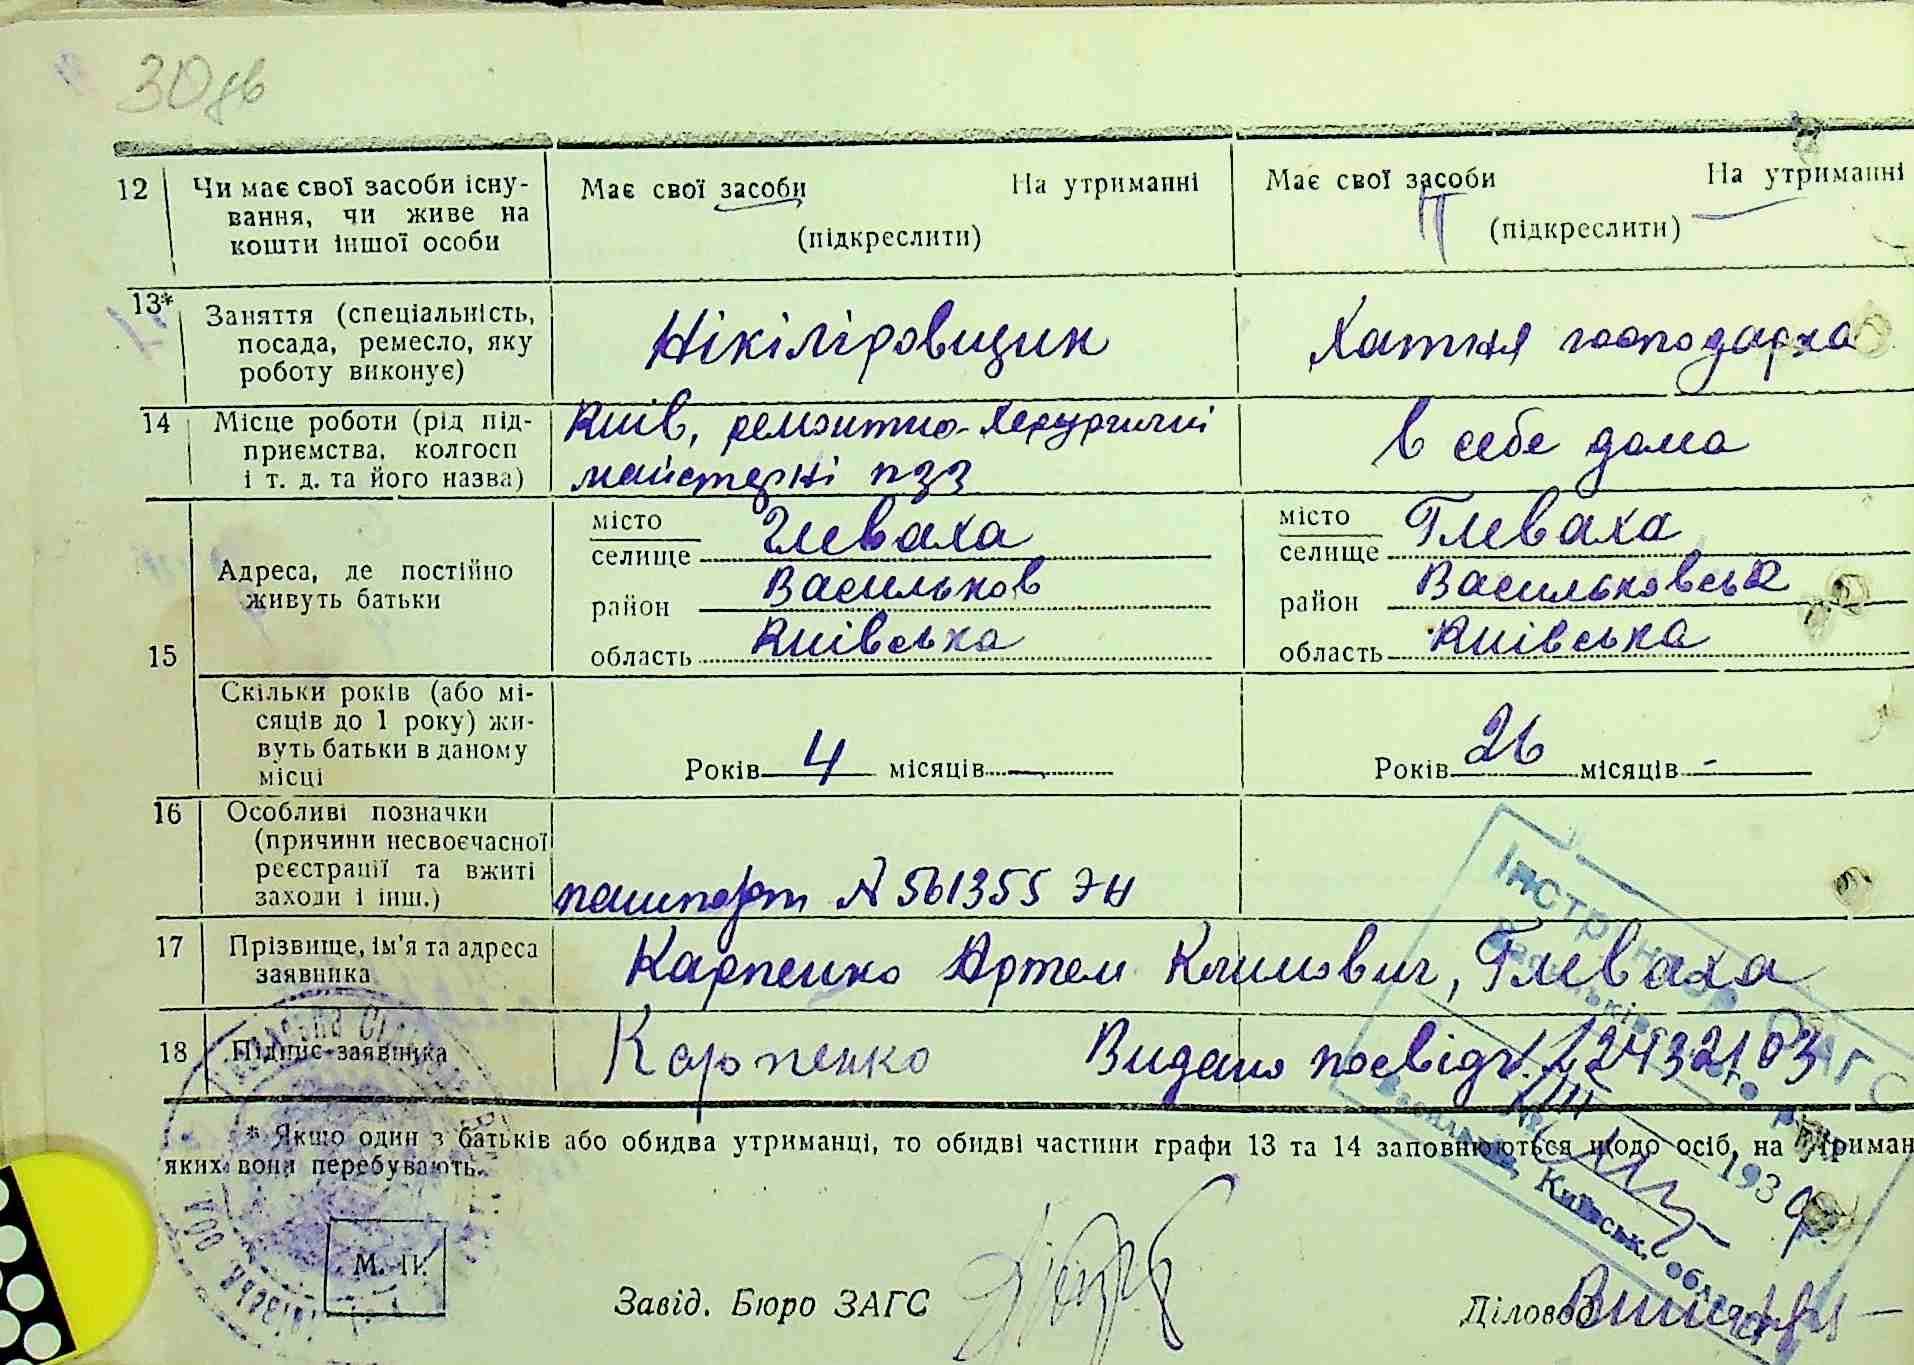 30 зв
12 Чи має свої засоби існу- Має свої засоби На утриманні Має свої засоби На утриманні
вання, чи живе на (підкреслити) (підкреслити)
кошти іншої особи
13* Заняття (спеціальність, Нікіліровщик Хатня господарка
посада, ремесло, яку
роботу виконує)
14 Місце роботи (рід під- Київ, ремонтно-Херургичні в себе дома
приємства, колгосп майстерні пзз
і т. д. та його назва)
15 Адреса, де постійно живуть батьки
місто Глеваха місто Глеваха
селище селище
район Васильков район Васильковськ
область Київська область Київська
Скільки років (або мі-
сяців до 1 року) жи-
вуть батьки в даному Років 4 місяців - Років 26 місяців -
місці
16 Особливі позначки
(причини несвоєчасної
реєстрації та вжиті
заходи і інш.) пашпорт № 561355 ЭН
17 Прізвище, ім'я та адреса Карпенко Артем Климович, Глеваха
заявника
18 Підпис заявника Карпенко Видано посвідч.
* Якщо один з батьків або обидва утриманці, то обидві частини графи 13 та 14 заповнюються щодо осіб, на утриман
яких вони перебувають.
Інструктор ЗАГС
Васильківського р
1939
Васильків, Київськ. обл
М. П.
Завід. Бюро ЗАГС
Діловод